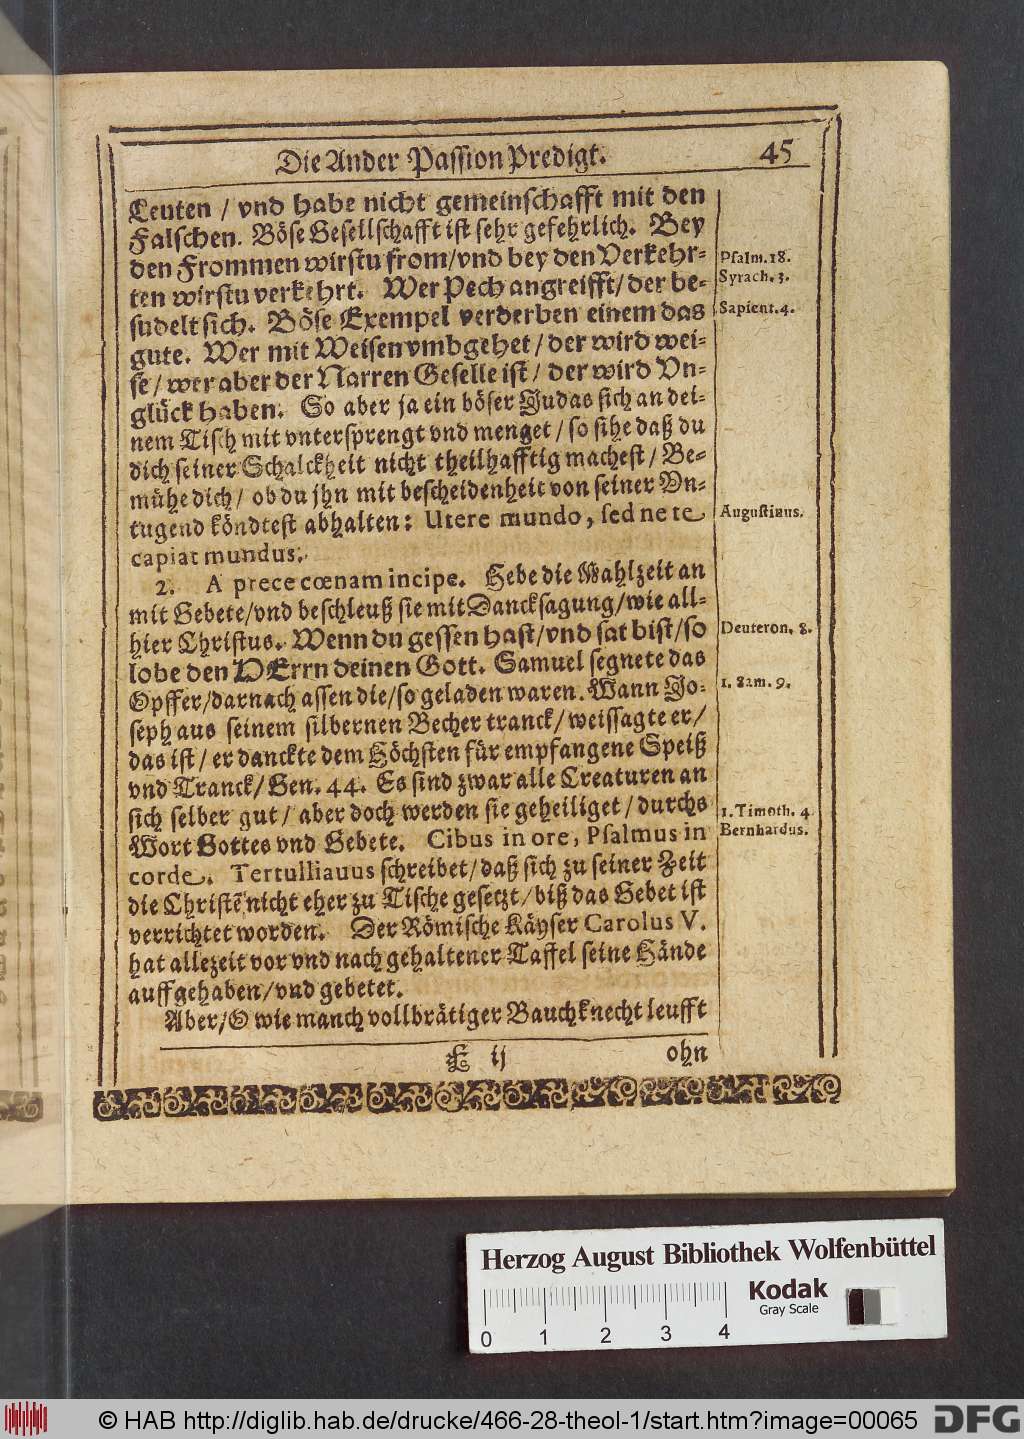 Die Ander Passion Predigt. 45
Leuten / vnd habe nicht gemeinschafft mit den
Falschen. Böse Gesellschafft ist sehr gefehrlich. Bey
den Frommen wirstu from/vnd bey den Verkehr-
ten wirstu verkehrt. Wer Pech angreifft/ der be-
sudelt sich. Böse Exempel verderben einem das
gute. Wer mit Weisen vmbgehet / der wird wei-
se / wer aber der Narren Geselle ist / der wird Vn-
glück haben. So aber ja ein böser Judas sich an dei-
nem Tisch mit vntersprengt vnd menget / so sihe daß du
dich seiner Schalckheit nicht theilhafftig machest / Be-
mühe dich / ob du jhn mit bescheidenheit von seiner Vn-
tugend köndtest abhalten: Utere mundo, sed ne te
capiat mundus.
2. A prece cœnam incipe. Hebe die Mahlzeit an
mit Gebete/vnd beschleuß sie mit Dancksagung/wie all-
hier Christus. Wenn du gessen hast/vnd sat bist/so
lobe den HErrn deinen Gott. Samuel segnete das
Opffer/darnach assen die/so geladen waren. Wann Jo-
seph aus seinem silbernen Becher tranck/weissagte er/
das ist / er danckte dem Höchsten für empfangene Speiß
vnd Tranck/ Gen. 44. Es sind zwar alle Creaturen an
sich selber gut / aber doch werden sie geheiliget / durchs
Wort Gottes vnd Gebete. Cibus in ore, Psalmus in
corde. Tertullianus schreibet/daß sich zu seiner Zeit
die Christē nicht eher zu Tische gesetzt/biß das Gebet ist
verrichtet worden. Der Römische Käyser Carolus V.
hat allezeit vor vnd nach gehaltener Taffel seine Hände
auffgehaben/vnd gebetet.
Aber/O wie manch vollbrätiger Bauchknecht leufft
E ij ohn
Psalm. 18.
Syrach. 3.
Sapient. 4.
Augustinus.
Deuteron. 8.
1. Sam. 9.
1. Timoth. 4
Bernhardus.
Herzog August Bibliothek Wolfenbüttel
Kodak
Gray Scale
0 1 2 3 4
© HAB http://diglib.hab.de/drucke/466-28-theol-1/start.htm?image=00065
DFG